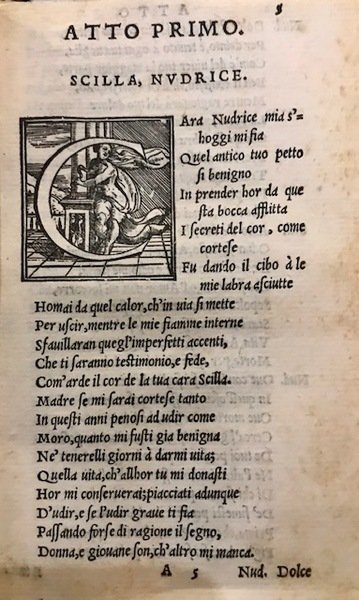 5
ATTO PRIMO.
SCILLA, NVDRICE.
CAra Nudrice mia s'=
hoggi mi fia
Quel antico tuo petto
si benigno
In prender hor da que
sta bocca afflitta
I secreti del cor, come
cortese
Fu dando il cibo à le
mie labra asciutte
Homai da quel calor, ch'in uia si mette
Per uscir, mentre le mie fiamme interne
Sfauillaran quegl'imperfetti accenti,
Che ti saranno testimonio, e fede,
Com'arde il cor de la tua cara Scilla.
Madre se mi sarai cortese tanto
In questi anni penosi ad udir come
Moro, quanto mi fusti gia benigna
Ne' tenerelli giorni à darmi uita;
Quella uita, ch'allhor tu mi donasti
Hor mi conseruerai; piacciati adunque
D'udir, e se l'udir graue ti fia
Passando forse di ragione il segno,
Donna, e giouane son, ch'altro mi manca.
A 5 Nud. Dolce